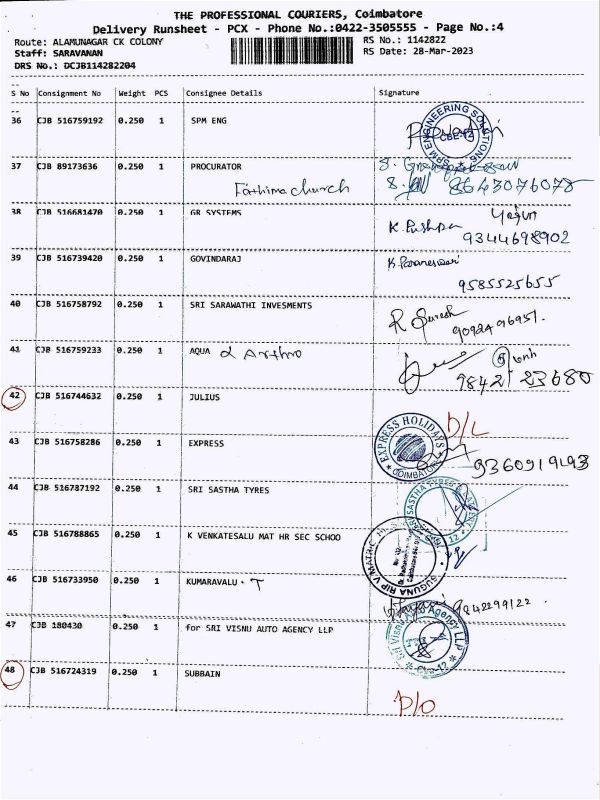 THE PROFESSIONAL COURIERS, Coimbatore
Delivery Runsheet - PCX - Phone No.:0422-3505555 - Page No.:4
Route: ALAMUNAGAR CK COLONY RS No.: 1142822
Staff: SARAVANAN RS Date: 28-Mar-2023
DRS No.: DCJB114282204
S No Consignment No Weight PCS Consignee Details Signature
36 CJB 516759192 0.250 1 SPM ENG SPM ENGINEERING SOLUTIONS CBE-12
37 CJB 89173636 0.250 1 PROCURATOR
Fathima church 8643076078
38 CJB 516681470 0.250 1 GR SYSTEMS K. Pushpa
9344698902
39 CJB 516739420 0.250 1 GOVINDARAJ K. Parameswari
9585525655
40 CJB 516758792 0.250 1 SRI SARAWATHI INVESMENTS R Suresh
9092496957.
41 CJB 516759233 0.250 1 AQUA
9842 23680
42 CJB 516744632 0.250 1 JULIUS D/L
43 CJB 516758286 0.250 1 EXPRESS EXPRESS HOLIDAYS COIMBATORE
9360919493
44 CJB 516787192 0.250 1 SRI SASTHA TYRES
45 CJB 516788865 0.250 1 K VENKATESALU MAT HR SEC SCHOO SUGUNA RIP V MATRIC
46 CJB 516733950 0.250 1 KUMARAVALU . T
9842299122
47 CJB 180430 0.250 1 for SRI VISNU AUTO AGENCY LLP Sri Visnu Auto Agency LLP Cbe-12
48 CJB 516724319 0.250 1 SUBBAIN
D/O